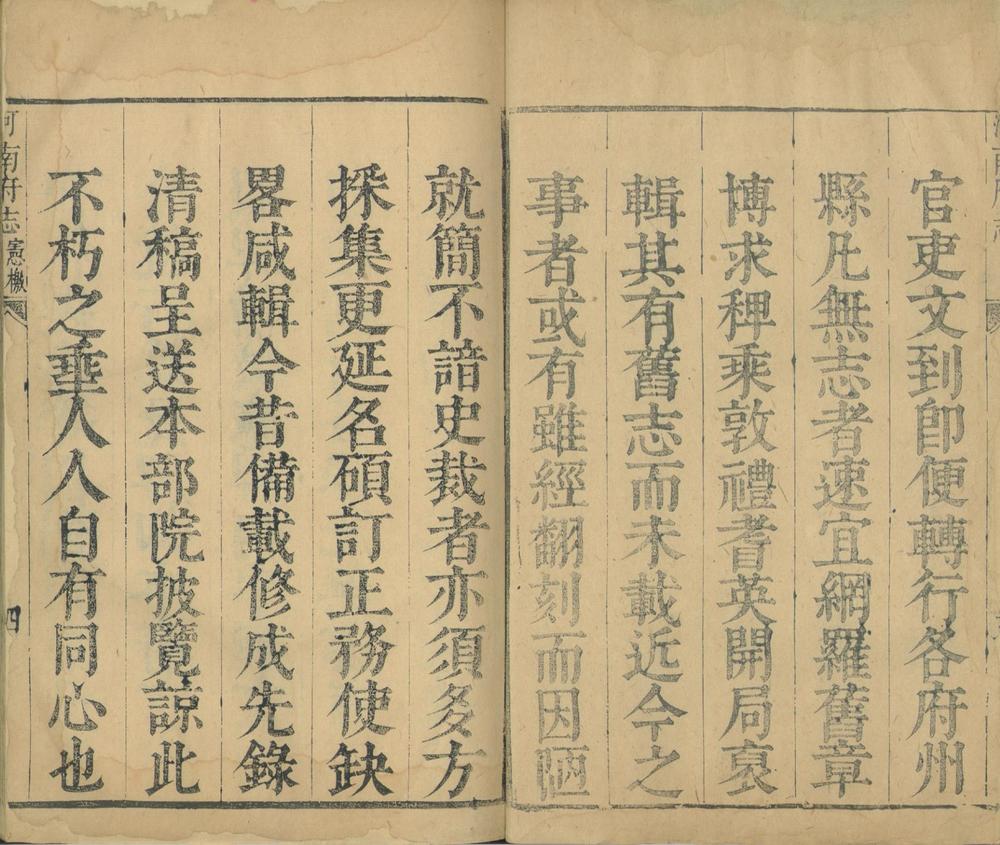 官吏文到卽便轉行各府州
縣凡無志者速宜網羅舊章
博求稗乘敦禮耆英開局裒
輯其有舊志而未載近今之
事者或有雖經翻刻而因陋
就簡不諳史裁者亦須多方
採集更延名碩訂正務使缺
畧咸輯今昔備載修成先錄
清稿呈送本部院披覽諒此
不朽之埀人人自有同心也
河南府志
憲檄
四